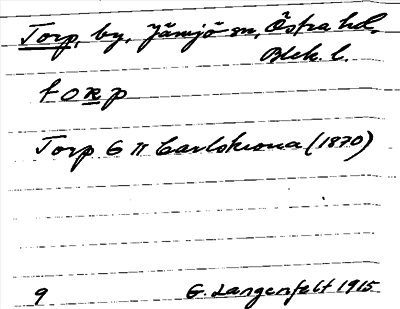 Torp, by, Jämjö sn, Östra hd,
Blek. l.
torp
Torp G π Carlskrona (1870)
9 G. Langenfelt 1915